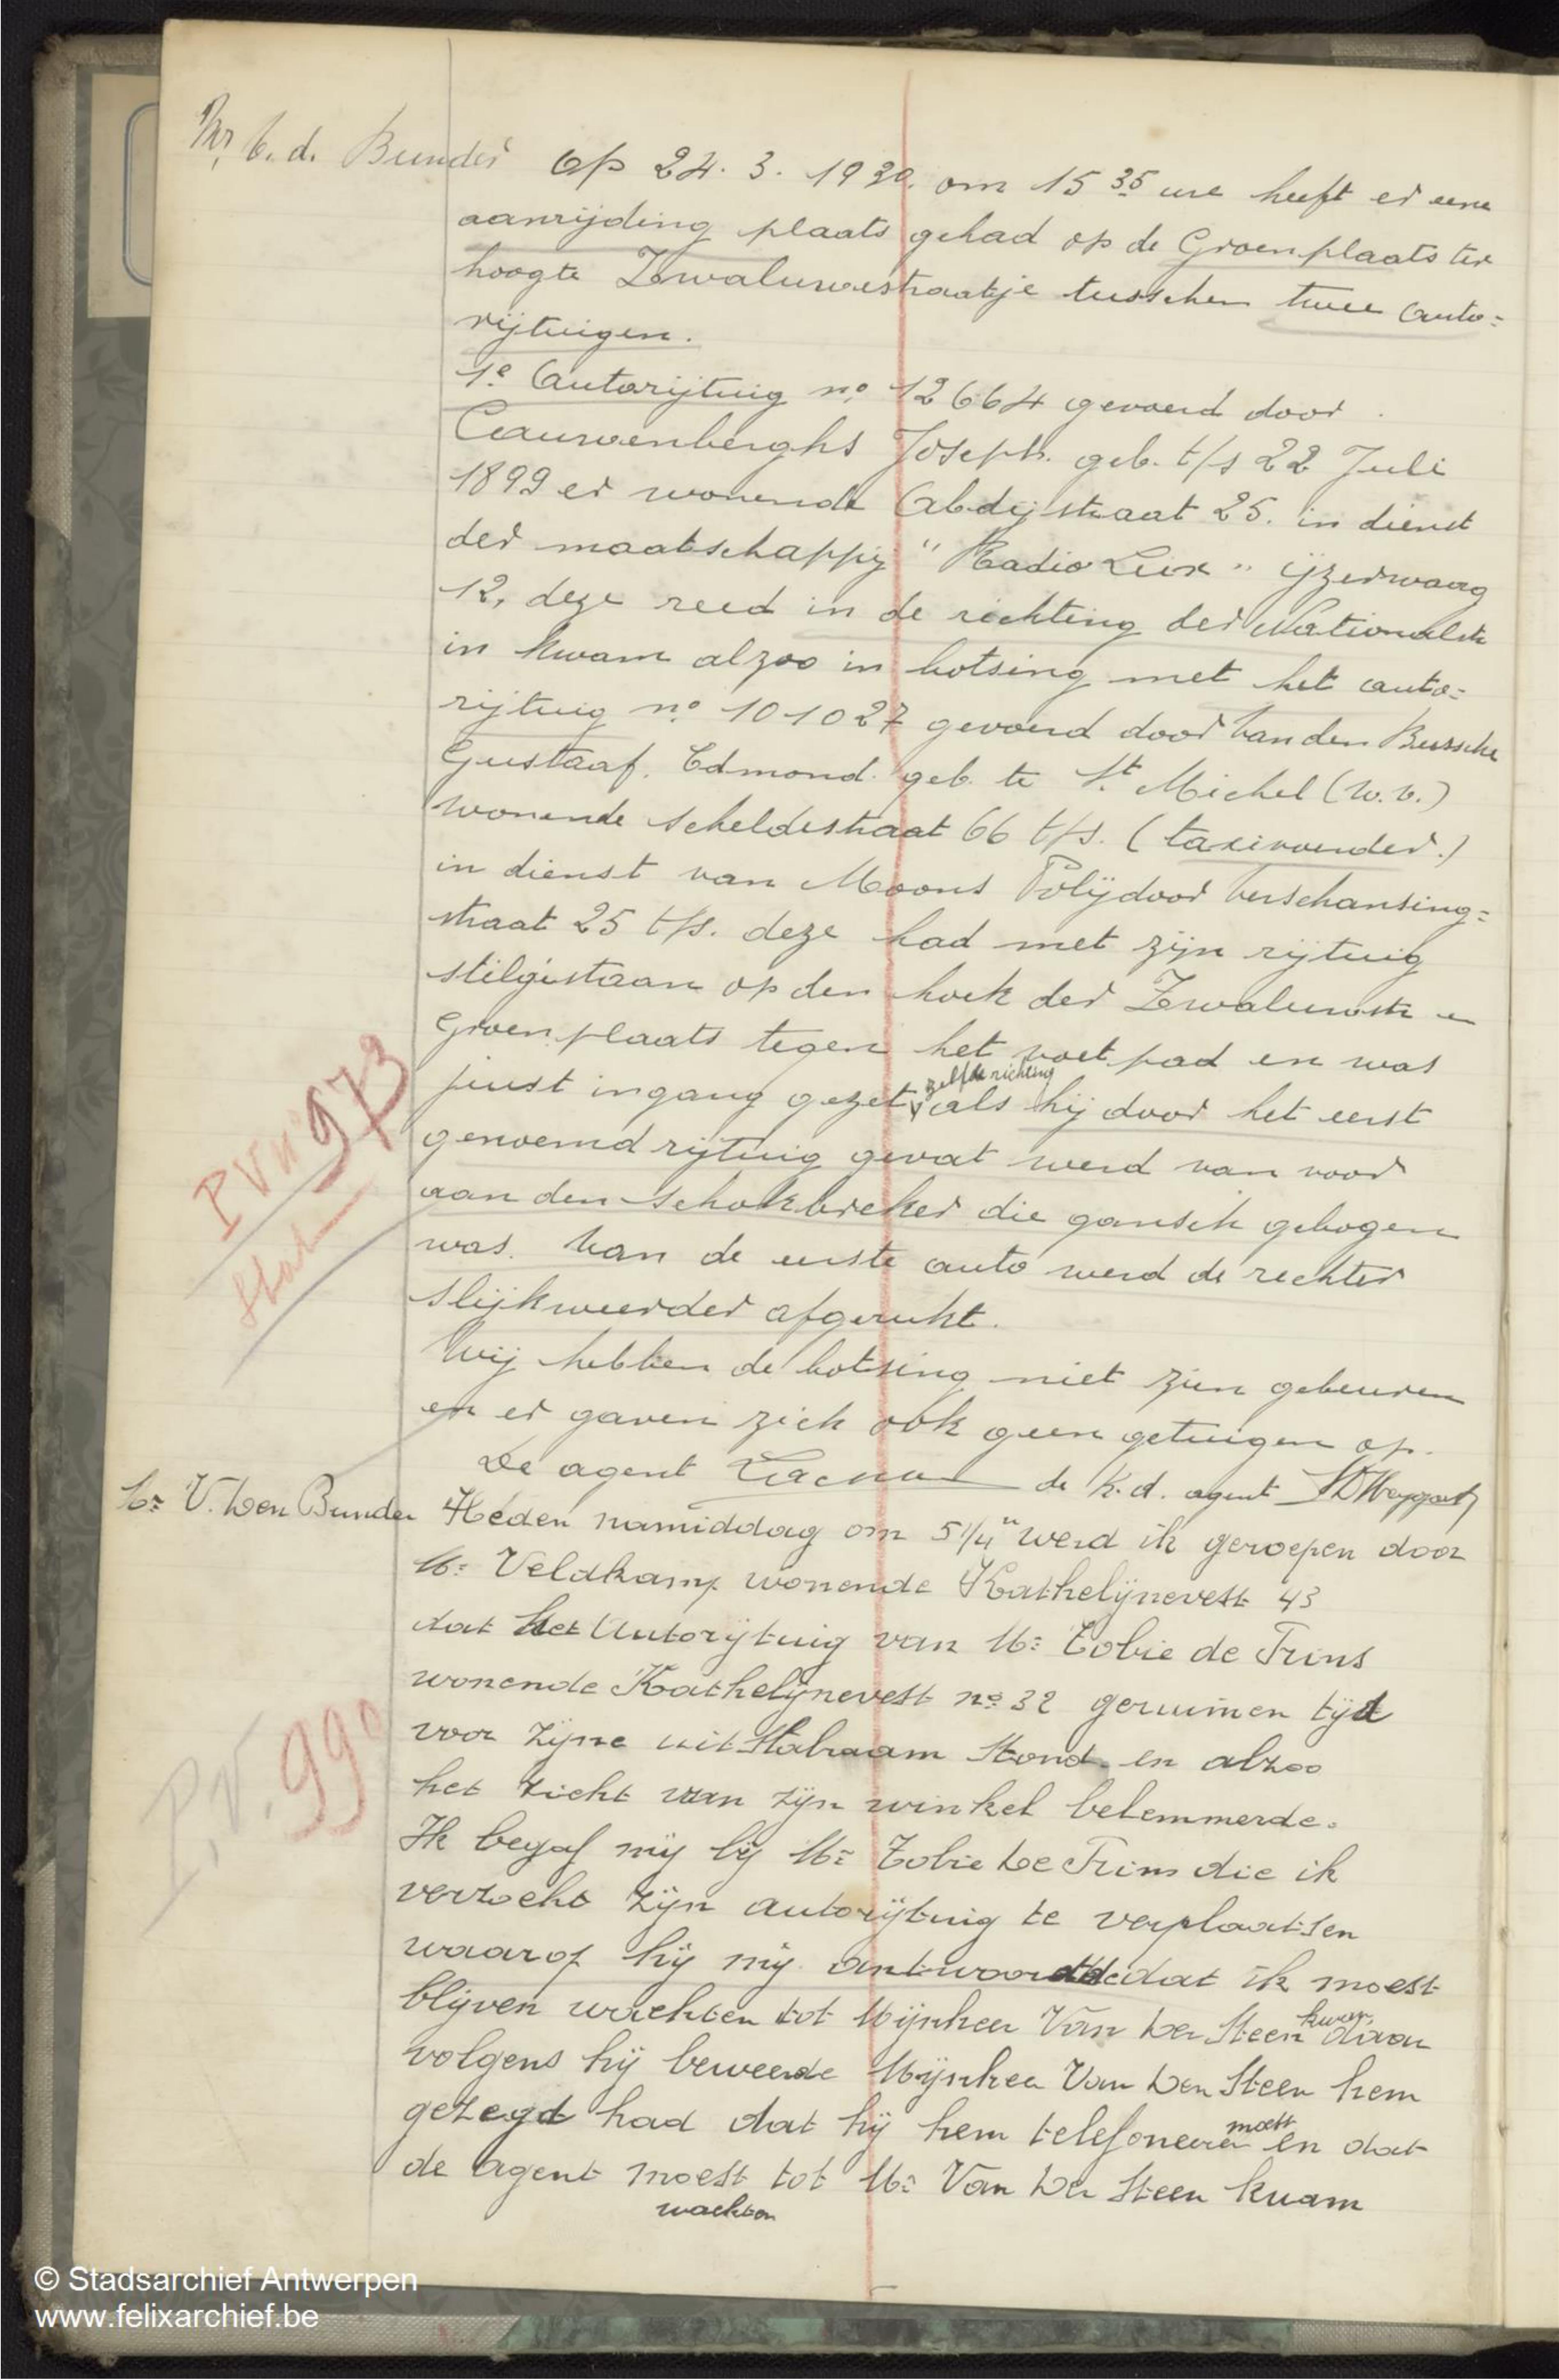 Mr V. d. Bunder
Op 24. 3. 1930. om 15 35 ure heeft er eene
aanrijding plaats gehad op de Groenplaats ter
hoogte Zwaluwestraatje tusschen twee auto=
rijtuigen.
1e Autorijtuig no 12664 gevoerd door
Cauwenberghs Joseph. geb. t/s 22 Juli
1899 er wonende Abdijstraat 25. in dienst
der maatschappij "Radio Lux" ijzerwaag
12, deze reed in de richting der Nationalestr
in kwam alzoo in botsing met het auto=
rijtuig no 101027 gevoerd door Van den Bussche
Gustaaf. Edmond. geb. te St. Michel (W.V.)
wonende Scheldestraat 66 t/s. (taxivoerder.)
in dienst van Moons Polijdoor Verschansing=
straat 25 t/s. deze had met zijn rijtuig
stilgestaan op den hoek der Zwaluwstr en
Groenplaats tegen het voetpad en was
zelfde richting
juist ingang gezet, als hij door het eerst
genoemd rijtuig gevat werd van voor
aan den schokbreker die gansch gebogen
was. Van de eerste auto werd de rechter
slijkweerder afgerukt.
Wij hebben de botsing niet zien gebeuren
en er gaven zich ook geen getuigen op.
De agent de k.d. agent
P V no 973
Mr V. Den Bunder
Heden namiddag om 5 1/4 u werd ik geroepen door
Mr Veldkamp wonende Kathelijnevest 43
dat het Autorijtuig van Mr Tobie de Prins
wonende Kathelijnevest no 32 geruimen tijd
voor zijne uitstalraam stond en alzoo
het zicht van zijn winkel belemmerde.
P.V. 990
Ik begaf mij bij Mr Tobie De Prins die ik
verzocht zijn autorijtuig te verplaatsen
waarop hij mij antwoordde dat ik moest
blijven wachten tot Mijnheer Van Der Steen kwam daar
volgens hij beweerde Mijnheer Van Den Steen hem
gezegd had dat hij hem telefoneeren moest en dat
de agent moest wachten tot Mr Van Der Steen kwam
© Stadsarchief Antwerpen
www.felixarchief.be